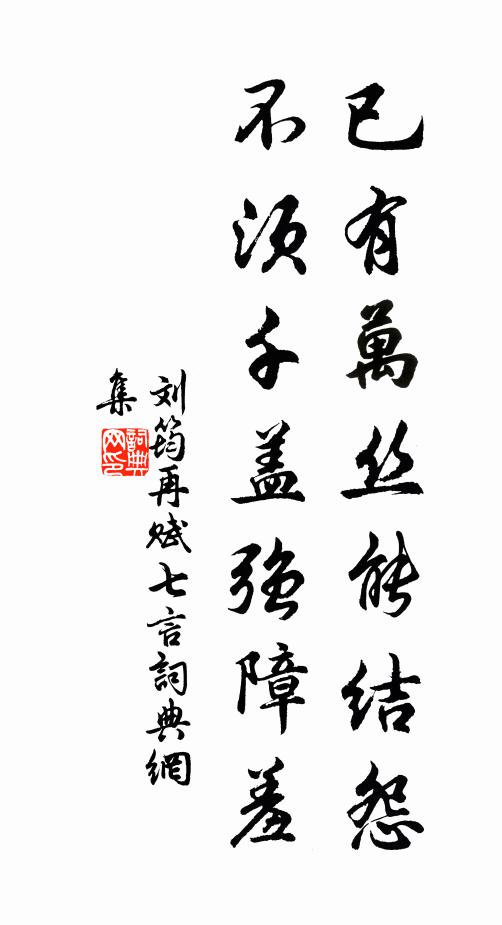 已有萬丝能结怨
不须千盖强障羞
刘筠再赋七言詞典網
集
詞典
网印